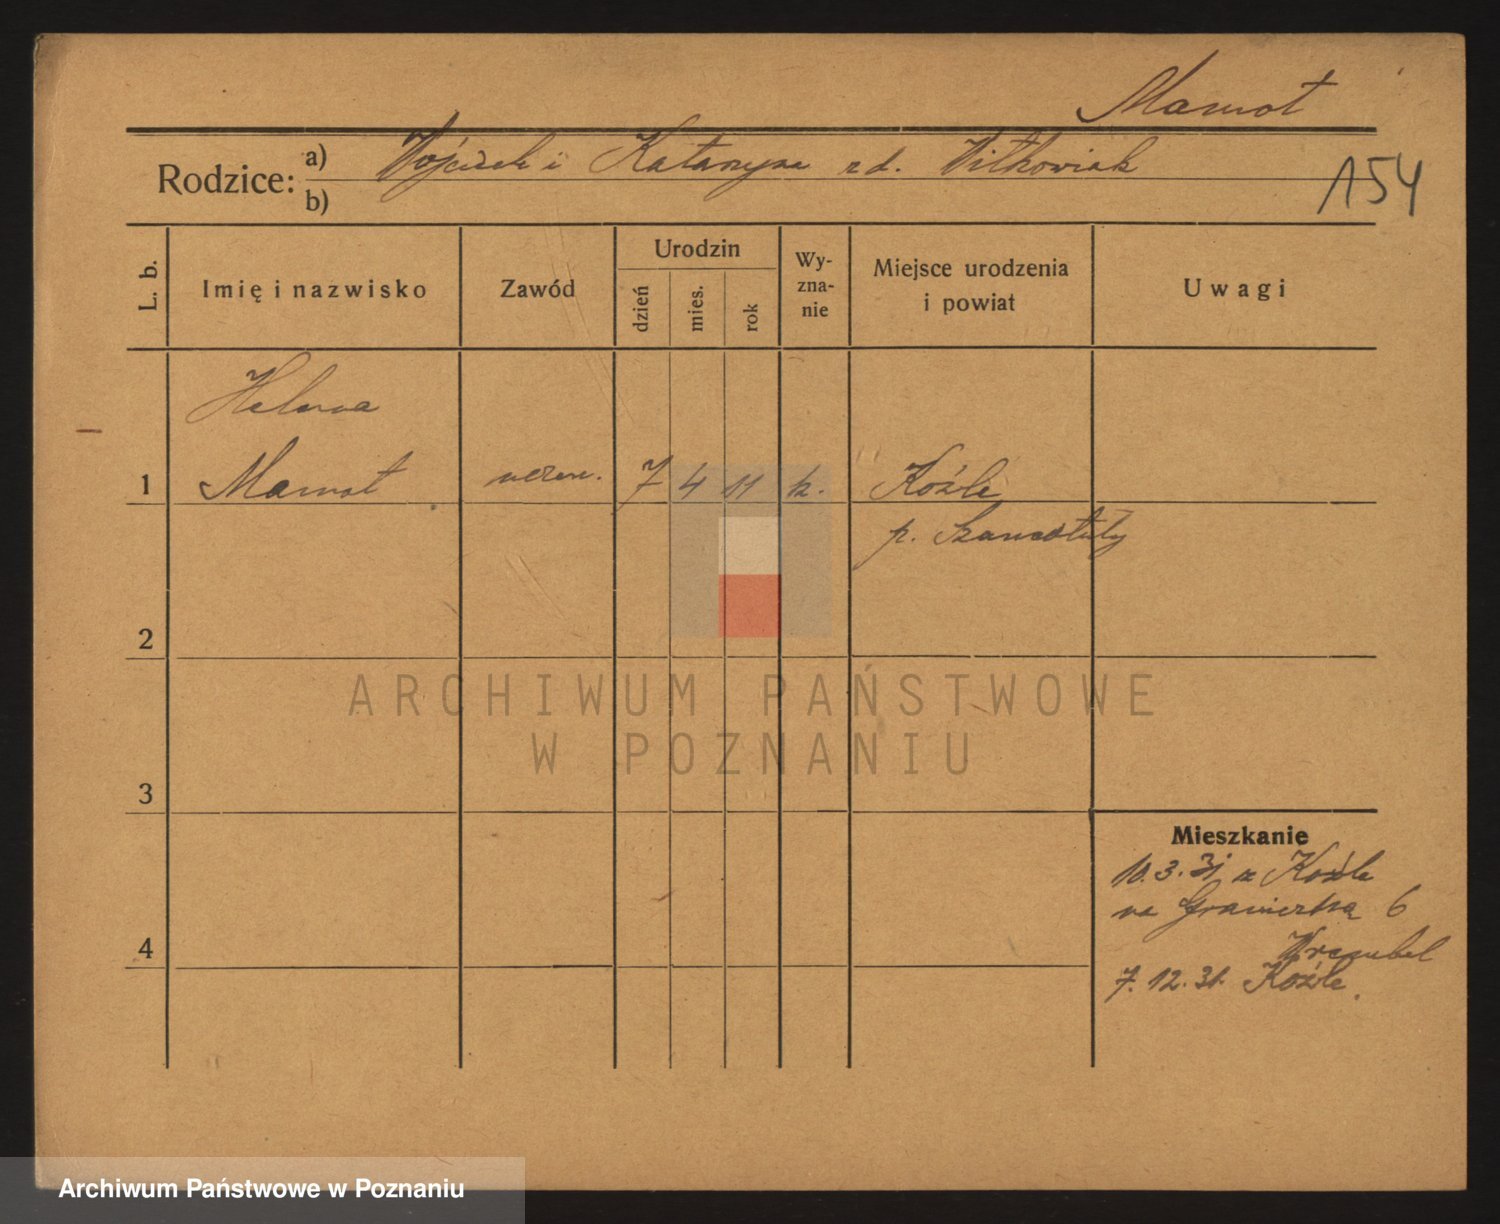 Mamot
Rodzice:
a) Wójciech i Katarzyna zd. Witkowiak
b)
154
L. b.
Imię i nazwisko
Zawód
Urodzin
dzień
mies.
rok
Wy-
zna-
nie
Miejsce urodzenia
i powiat
Uwagi
Helena
1 Mamot uczen. 7 4 11 k. Koźle
p. Szamotuły
2
3
4
Mieszkanie
10.3.31 z Koźle
na 6
7.12.31. Koźle.
ARCHIWUM PAŃSTWOWE
W POZNANIU
Archiwum Państwowe w Poznaniu